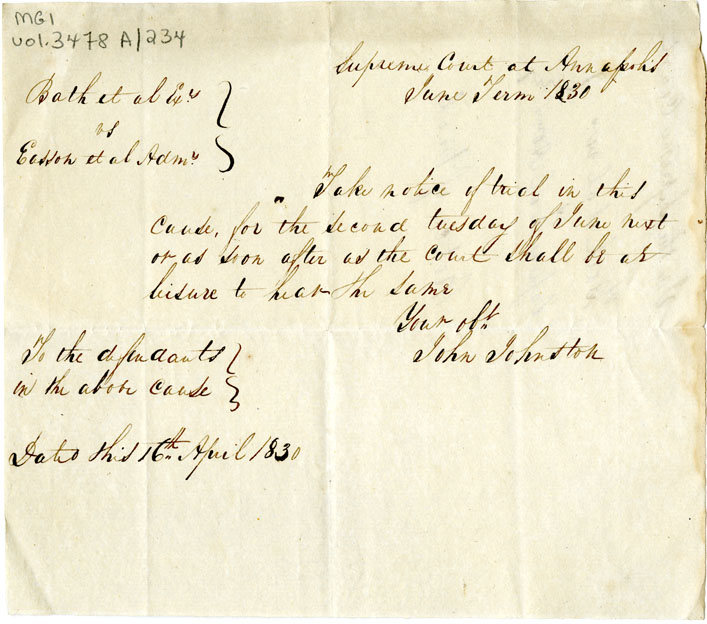 MG1
vol. 3478 A/234
Supreme Court at Annapolis
June Term 1830
Bath et al Exrs
vs
Easson et al Admrs
Take notice of trial in this
cause, for the second tuesday of June next
or as soon after as the court shall be at
leisure to hear the same
Your obt
John Johnston
To the defendants
in the above cause
Dated this 16th April 1830